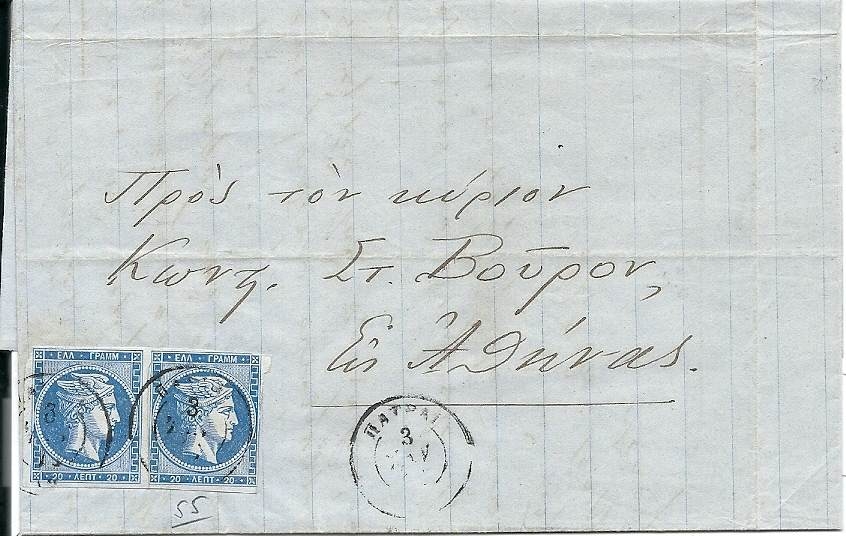 Πρὸς τὸν κύριον
Κωνσ. Στ. Βοῦρον,
Εἰς Ἀθήνας.
ΕΛΛ ΓΡΑΜΜ ΕΛΛ ΓΡΑΜΜ
3 3
20 ΛΕΠΤ 20 20 ΛΕΠΤ 20
ΠΑΤΡΑΙ
3
55